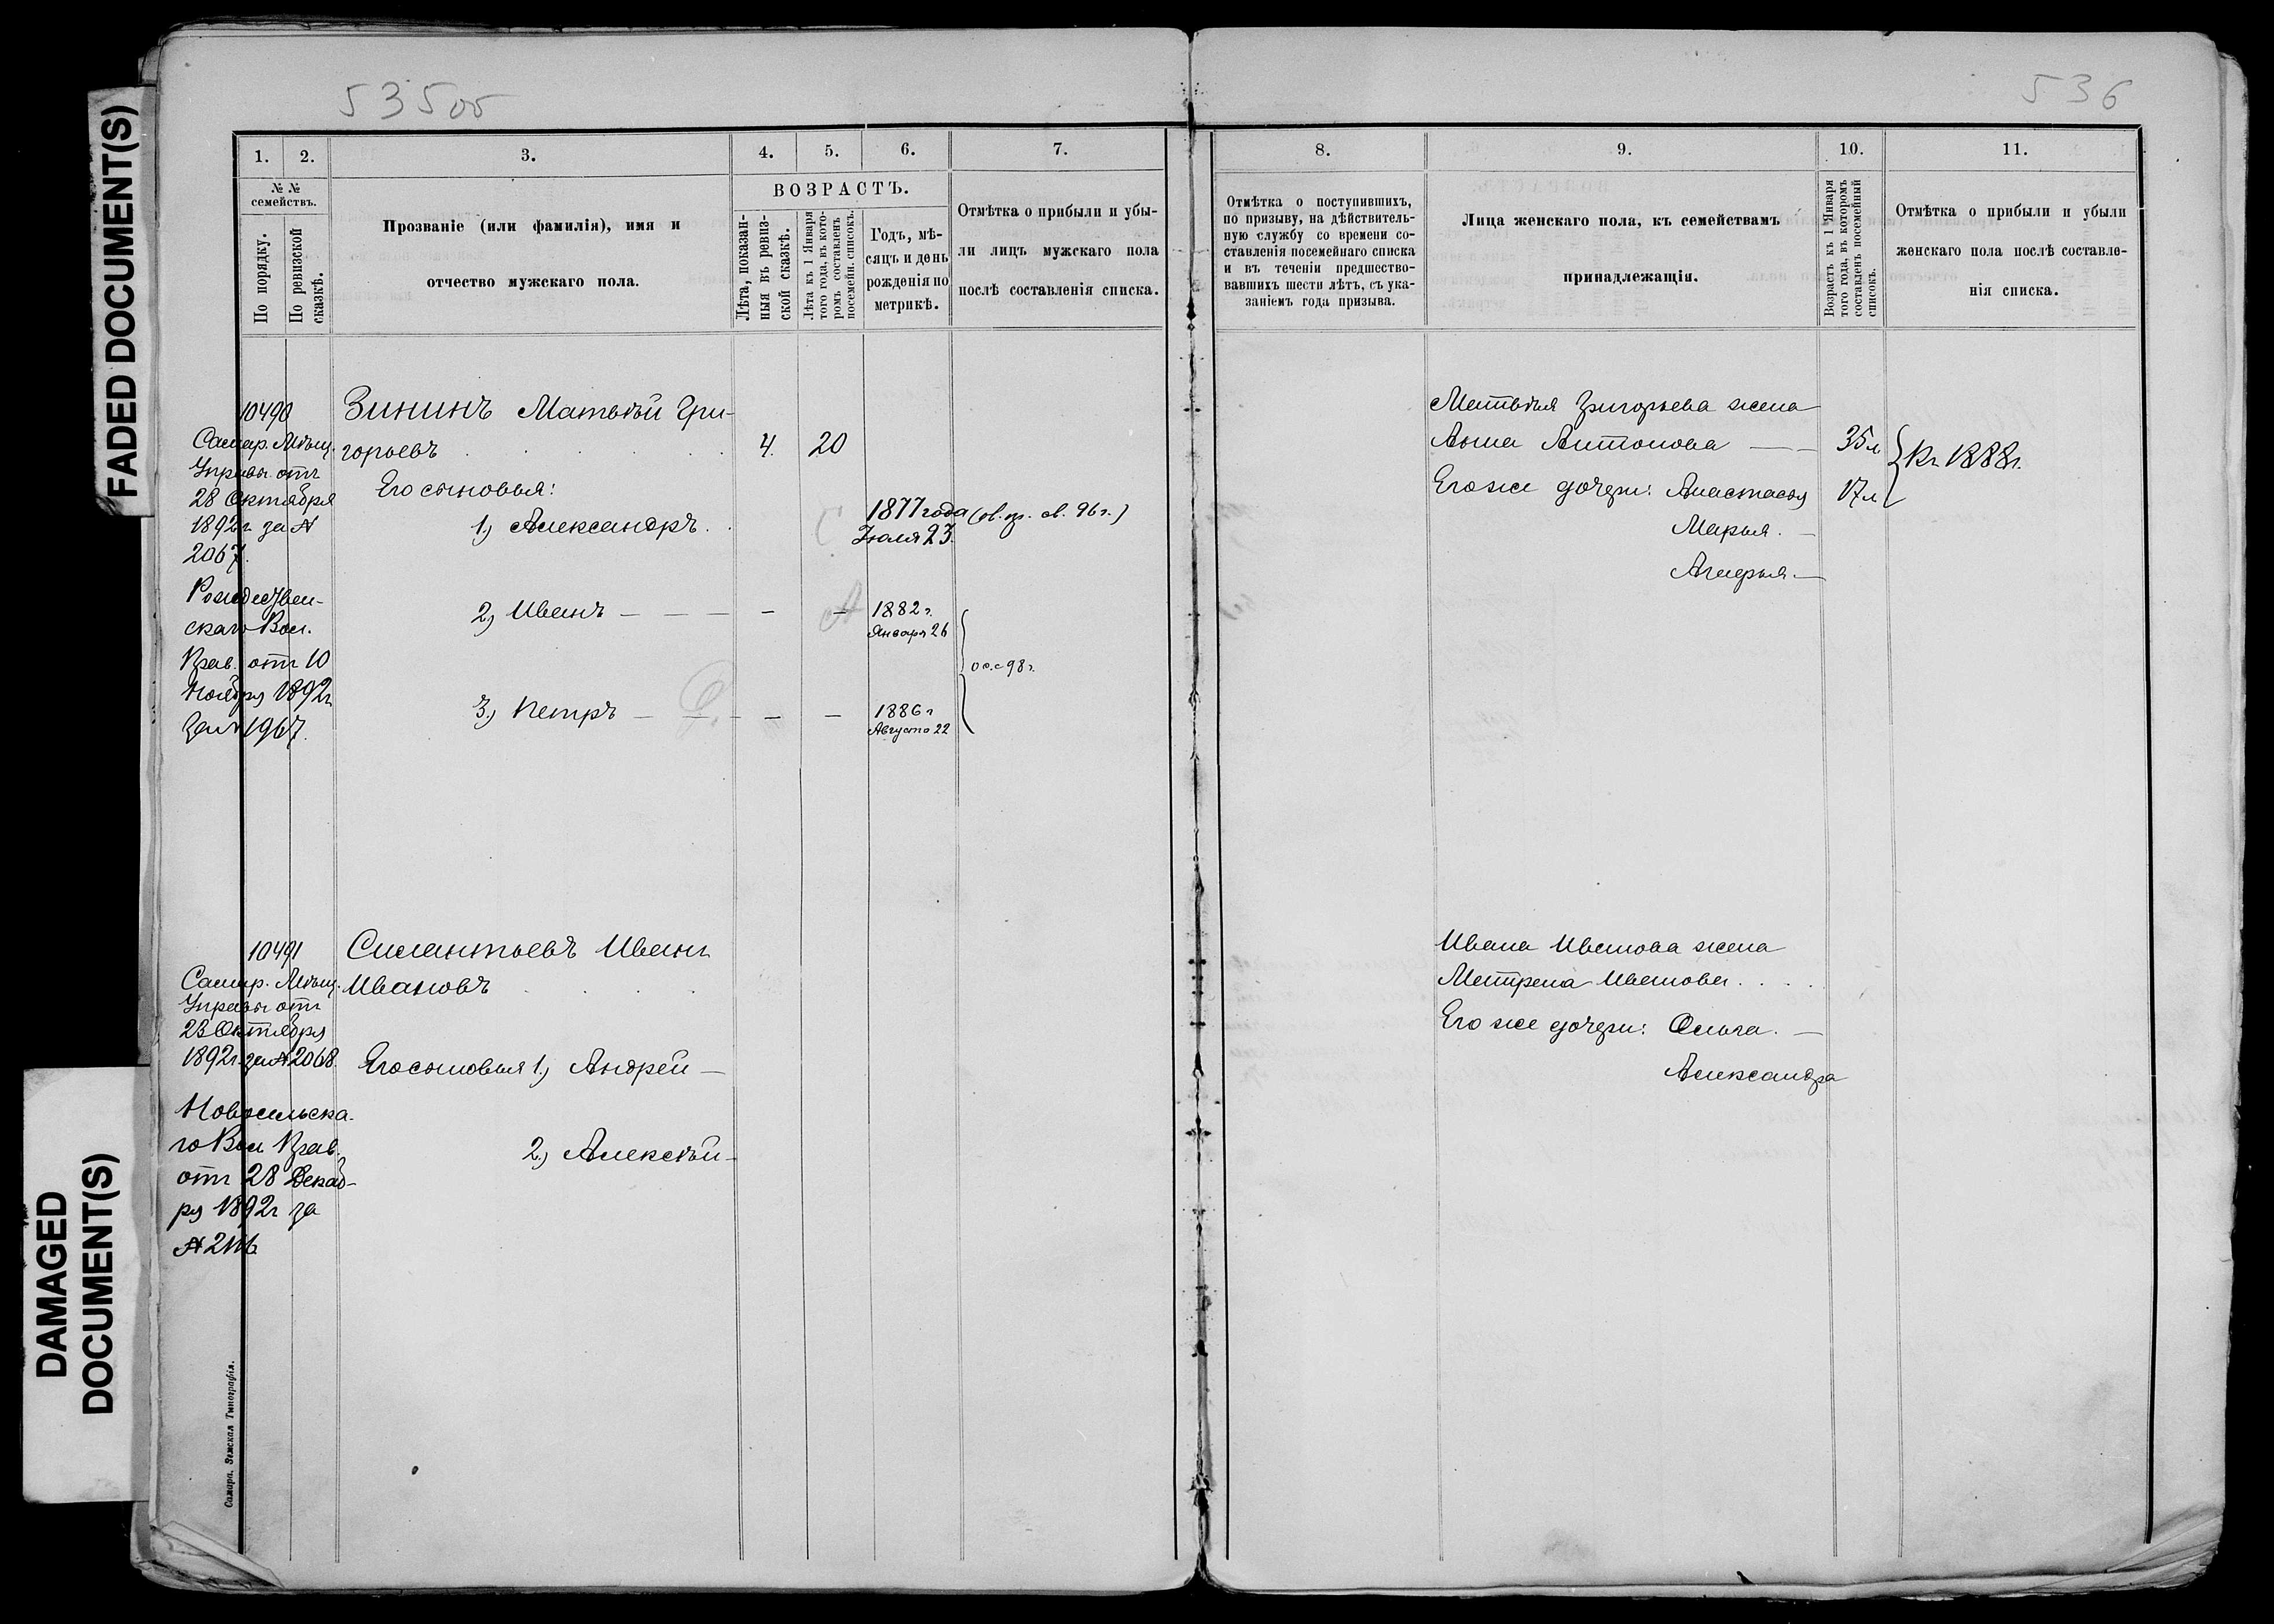 FADED DOCUMENT(S)
DAMAGED
DOCUMENT(S)
535об
1. 2. 3. 4. 5. 6. 7.
№ №
семействъ.
По порядку.
По ревизской
сказкѣ.
Прозваніе (или фамилія), имя и
отчество мужскаго пола.
ВОЗРАСТЪ.
Лѣта, показан-
ныя въ ревиз-
ской сказкѣ.
Лѣта къ 1 Января
того года, въ кото-
ромъ составленъ
посемейн. списокъ.
Годъ, мѣ-
сяцъ и день
рожденія по
метрикѣ.
Отмѣтка о прибыли и убы-
ли лицъ мужскаго пола
послѣ составленія списка.
10490
Самар. Мѣщ.
Управы отъ
28 Октября
1892г. за №
2067.
Рождествен-
скаго Вол.
Прав. отъ 10
Ноября 1892г.
за № 1967.
Зининъ Матвѣй Гри-
горьевъ 4. 20
Его сыновья:
1) Александръ. 1877 года
Іюля 23.
2) Иванъ — — — — — 1882 г.
Января 26
98 г.
3) Петръ — — — — — 1886 г
Августа 22
10491
Самар. Мѣщ.
Управы отъ
28 Октября
1892г. за № 2068.
Новосильска-
го Вол Прав.
отъ 28 Декаб-
ря 1892г за
№
Силантьевъ Иванъ
Ивановъ
Его сыновья 1) Андрей —
2.) Алексѣй —
Самара. Земская Типографія.
536
8. 9. 10. 11.
Отмѣтка о поступившихъ,
по призыву, на дѣйствитель-
ную службу со времени со-
ставленія посемейнаго списка
и въ теченіи предшество-
вавшихъ шести лѣтъ, съ ука-
заніемъ года призыва.
Лица женскаго пола, къ семействамъ
принадлежащія.
Возрастъ къ 1 Января
того года, въ которомъ
составленъ посемейный
списокъ.
Отмѣтка о прибыли и убыли
женскаго пола послѣ составле-
нія списка.
Матвѣя Григорьева жена
Анна Антонова — — 35 л
Его же дочери: Анастасья 17 л
Къ 1888г.
Марья. —
Агаѳья. —
Ивана Иванова жена
Матрена Иванова . . . .
Его же дочери: Ольга. —
Александра